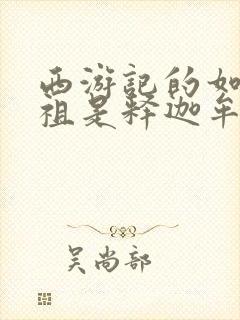 西游记的如
祖是释迦牟
吴尚部